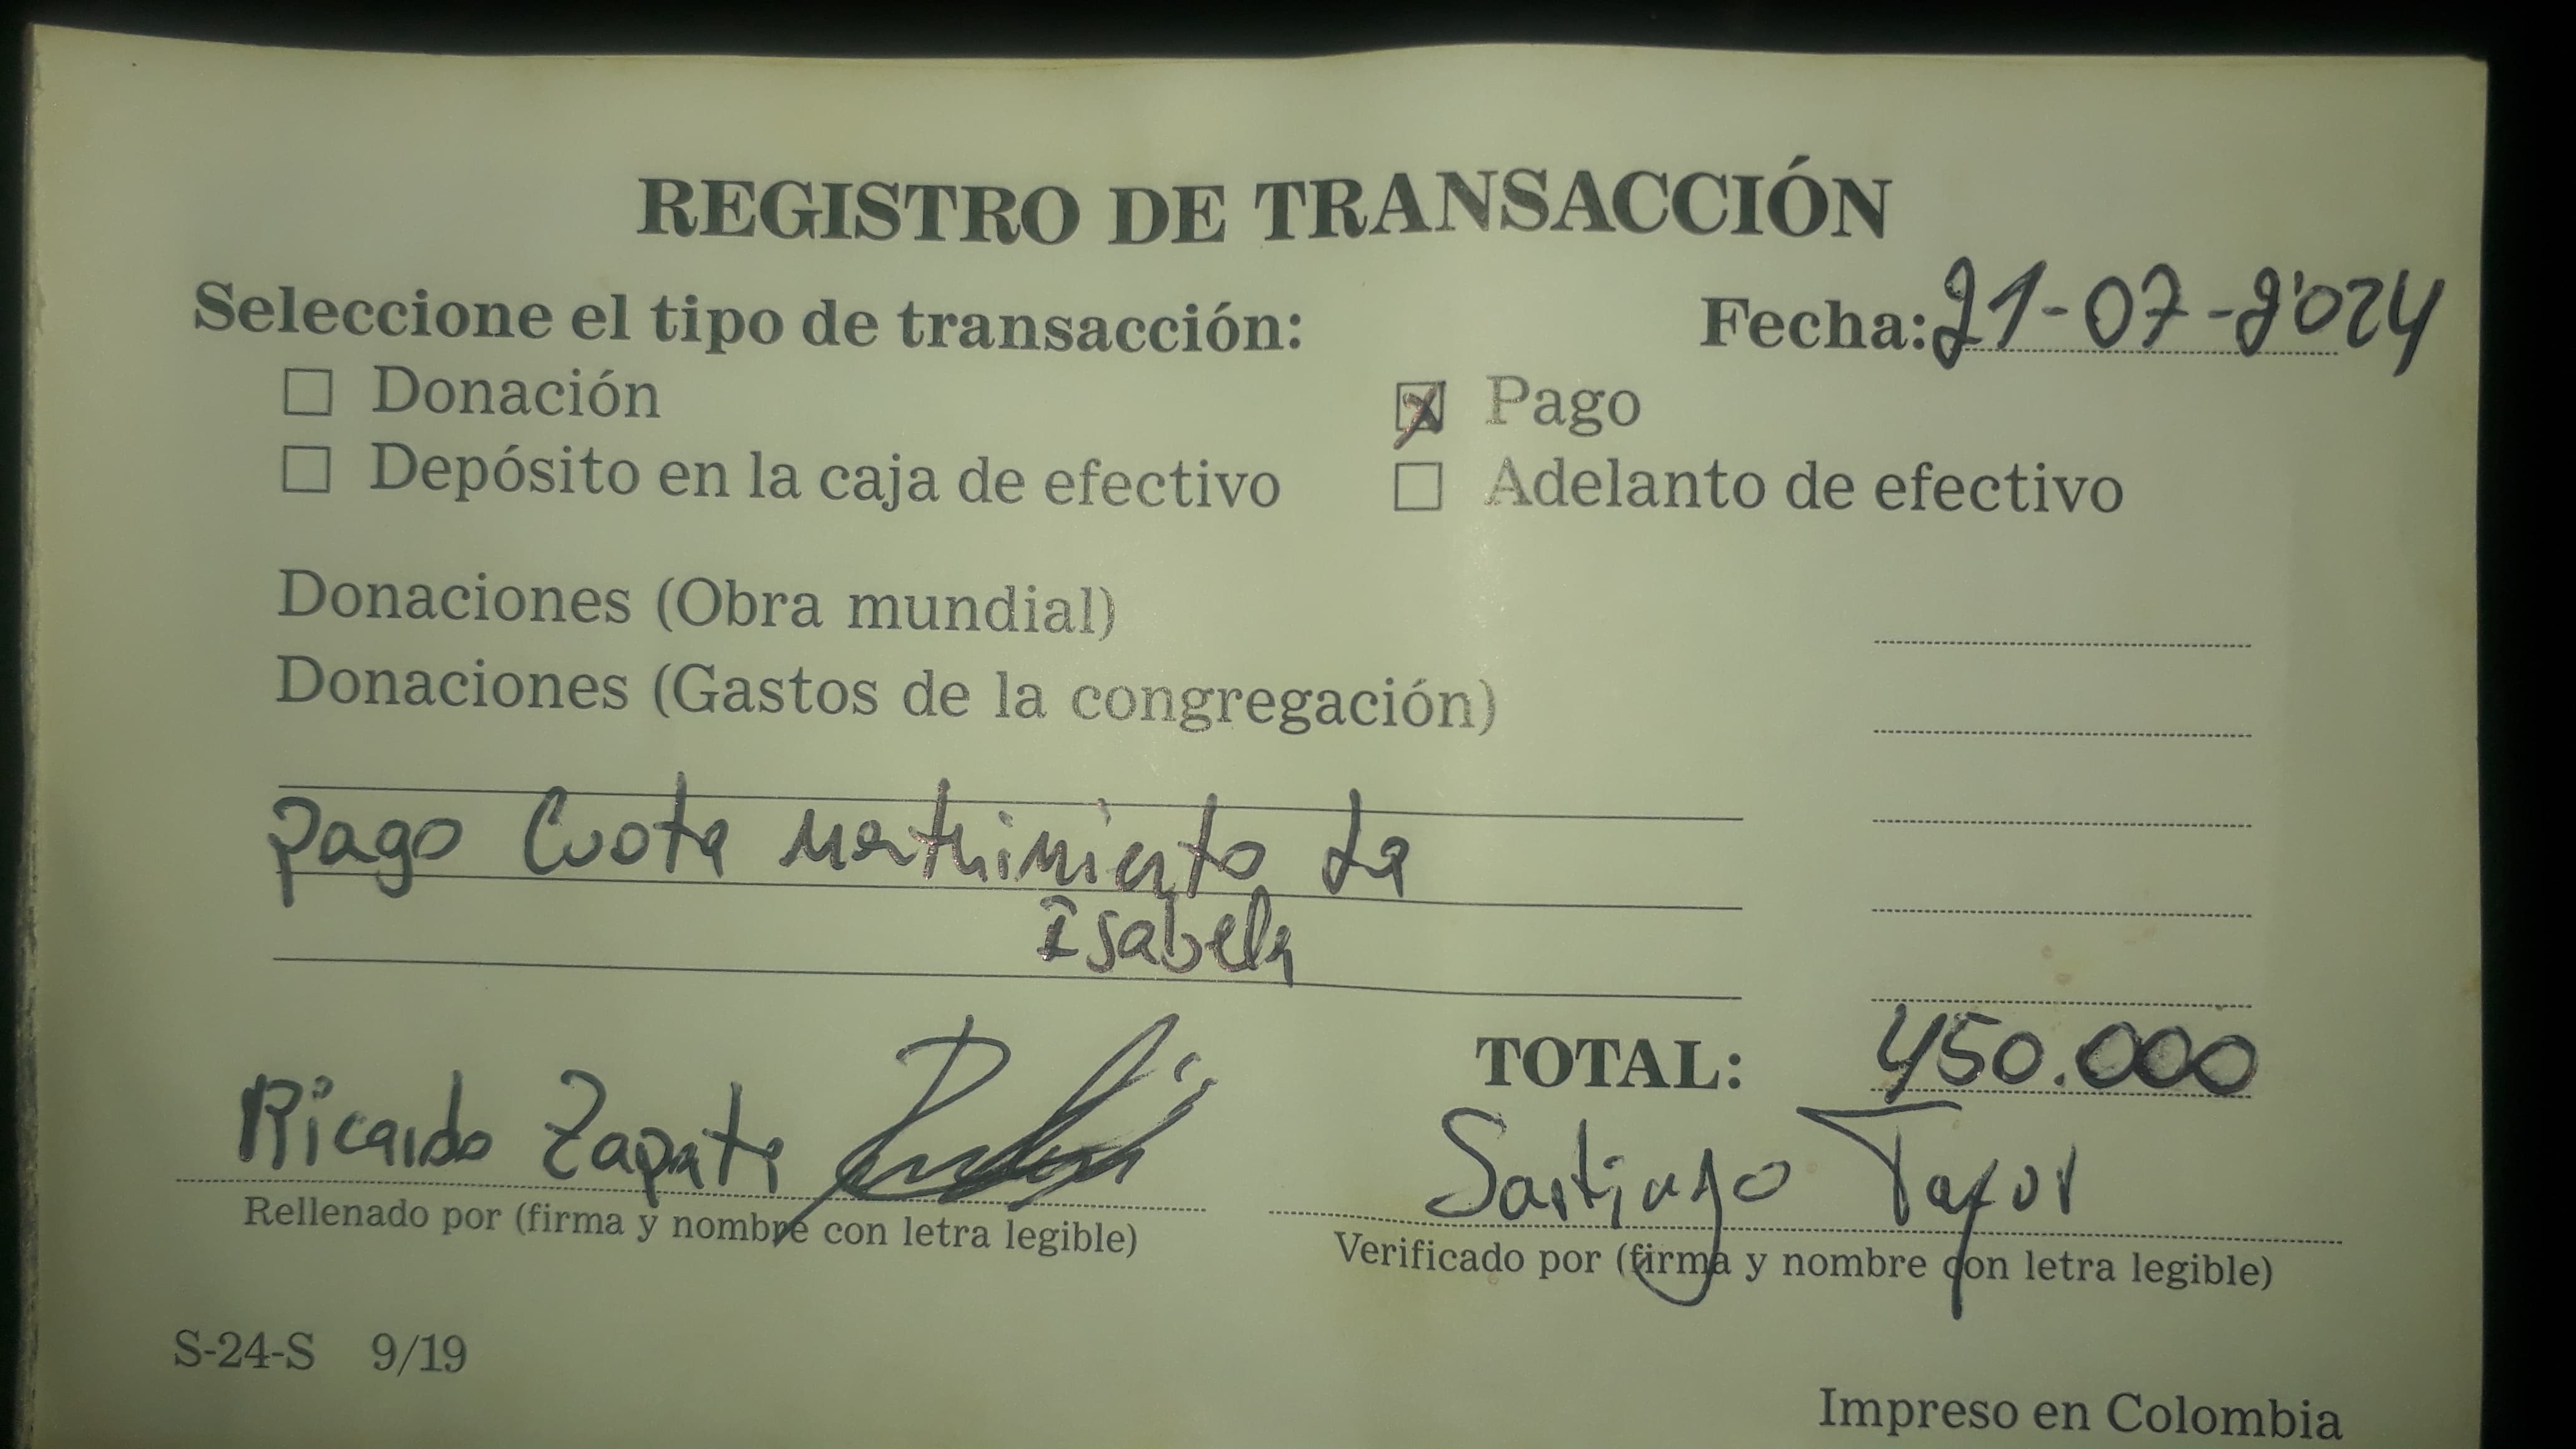 REGISTRO DE TRANSACCIÓN
Seleccione el tipo de transacción: Fecha: 21-07-2024
Donación Pago
Depósito en la caja de efectivo Adelanto de efectivo
Donaciones (Obra mundial)
Donaciones (Gastos de la congregación)
pago Cuota La
Isabela
TOTAL: 450.000
Ricardo Zapata Santiago Tafur
Rellenado por (firma y nombre con letra legible) Verificado por (firma y nombre con letra legible)
S-24-S 9/19
Impreso en Colombia